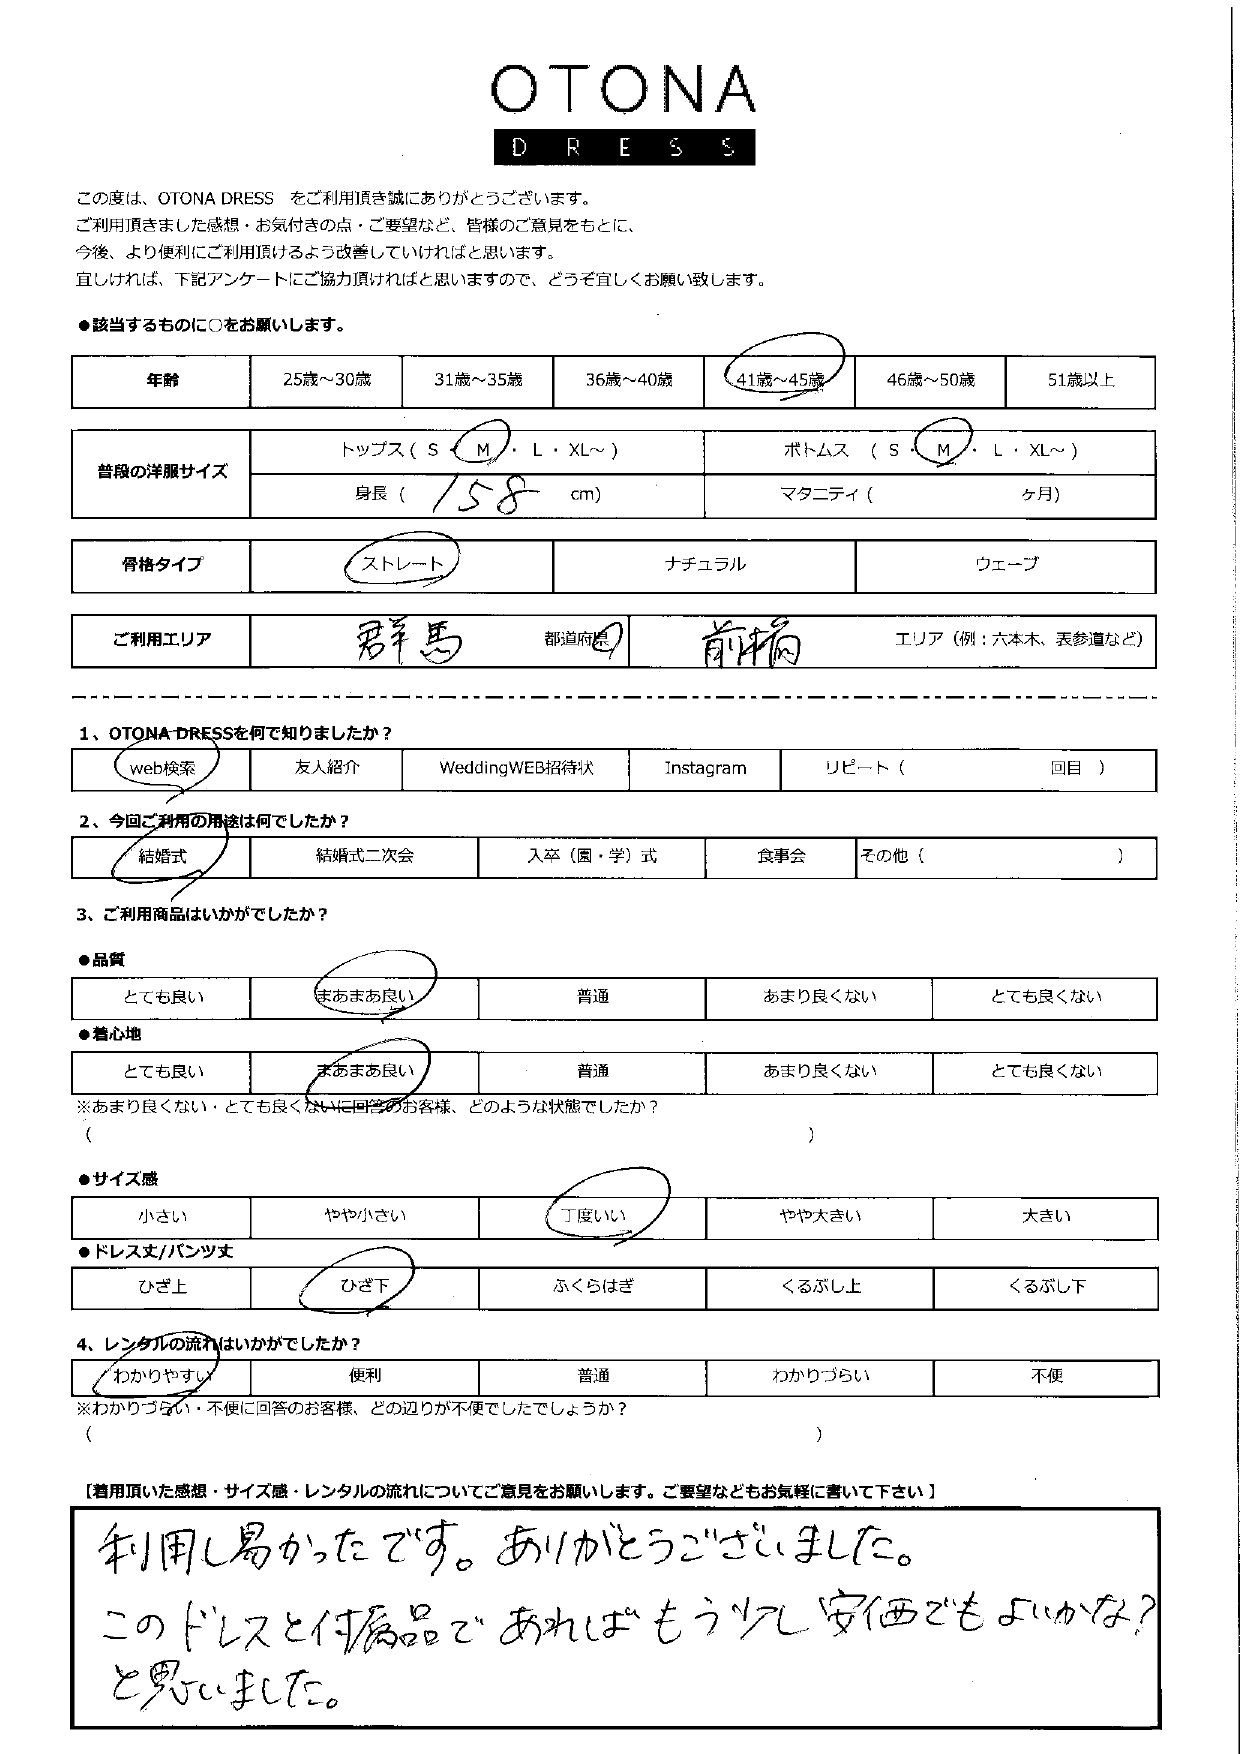 OTONA
DRESS
この度は、OTONA DRESS をご利用頂き誠にありがとうございます。
ご利用頂きました感想・お気付きの点・ご要望など、皆様のご意見をもとに、
今後、より便利にご利用頂けるよう改善していければと思います。
宜しければ、下記アンケートにご協力頂ければと思いますので、どうぞ宜しくお願い致します。
●該当するものに○をお願いします。
年齢 25歳～30歳 31歳～35歳 36歳～40歳 41歳～45歳 46歳～50歳 51歳以上
普段の洋服サイズ トップス ( S ・ M ・ L ・ XL～ ) ボトムス ( S ・ M ・ L ・ XL～ )
身長 ( 158 cm) マタニティ ( ヶ月)
骨格タイプ ストレート ナチュラル ウェーブ
ご利用エリア 群馬 都道府県 前橋 エリア（例：六本木、表参道など）
1、OTONA DRESSを何で知りましたか？
web検索 友人紹介 WeddingWEB招待状 Instagram リピート（ 回目 ）
2、今回ご利用の用途は何でしたか？
結婚式 結婚式二次会 入卒（園・学）式 食事会 その他（ ）
3、ご利用商品はいかがでしたか？
●品質
とても良い まあまあ良い 普通 あまり良くない とても良くない
●着心地
とても良い まあまあ良い 普通 あまり良くない とても良くない
※あまり良くない・とても良くないに回答のお客様、どのような状態でしたか？
（ ）
●サイズ感
小さい やや小さい 丁度いい やや大きい 大きい
●ドレス丈/パンツ丈
ひざ上 ひざ下 ふくらはぎ くるぶし上 くるぶし下
4、レンタルの流れはいかがでしたか？
わかりやすい 便利 普通 わかりづらい 不便
※わかりづらい・不便に回答のお客様、どの辺りが不便でしたでしょうか？
（ ）
【着用頂いた感想・サイズ感・レンタルの流れについてご意見をお願いします。ご要望などもお気軽に書いて下さい 】
利用し易かったです。ありがとうございました。
このドレスと付属品であればもう少し安価でもよいかな？
と思いました。